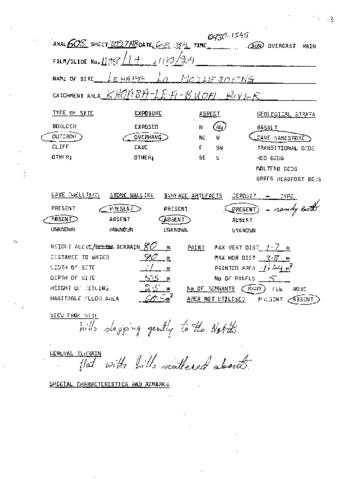 0930-1545
ANAL 60S SHEET 2027AB DATE 6.5.84 TIME SUN OVERCAST RAIN
FILM/SLIDE No.
NAME OF SITE
CATCHMENT AREA KHOABA-LEA-BUOA RIVIER
TYPE OF SITE EXPOSURE ASPECT GEOLOGICAL STRATA
BOULDER EXPOSED N NW BASALT
OUTCROP OVERHANG NE W CAVE SANDSTONE
CLIFF CAVE E SW TRANSITIONAL BEDS
OTHER: OTHER: SE S RED BEDS
MOLTENO BEDS
UPPER BEAUFORT BEDS
CAVE DWELLINGS STONE WALLING SURFACE ARTEFACTS DEPOSIT - TYPE
PRESENT PRESENT PRESENT PRESENT - sandy earth
ABSENT ABSENT ABSENT ABSENT
UNKNOWN UNKNOWN UNKNOWN UNKNOWN
HEIGHT ABOVE/ TERRAIN 80 m PAINT MAX VERT DIST 1.7 m
DISTANCE TO WATER 90 m MAX HOR DIST 3.8 m
WIDTH OF SITE 11 m PAINTED AREA m²
DEPTH OF SITE 5.5 m No OF PANELS 5
HEIGHT OF CEILING 2.5 m No OF REMNANTS MANY FEW NONE
HABITABLE FLOOR AREA 60.5 m² AREA NOT UTILISED PRESENT ABSENT
VIEW FROM SITE
hills slopping gently to the North.
GENERAL TERRAIN
flat with hills scattered about.
SPECIAL CHARACTERISTICS AND REMARKS